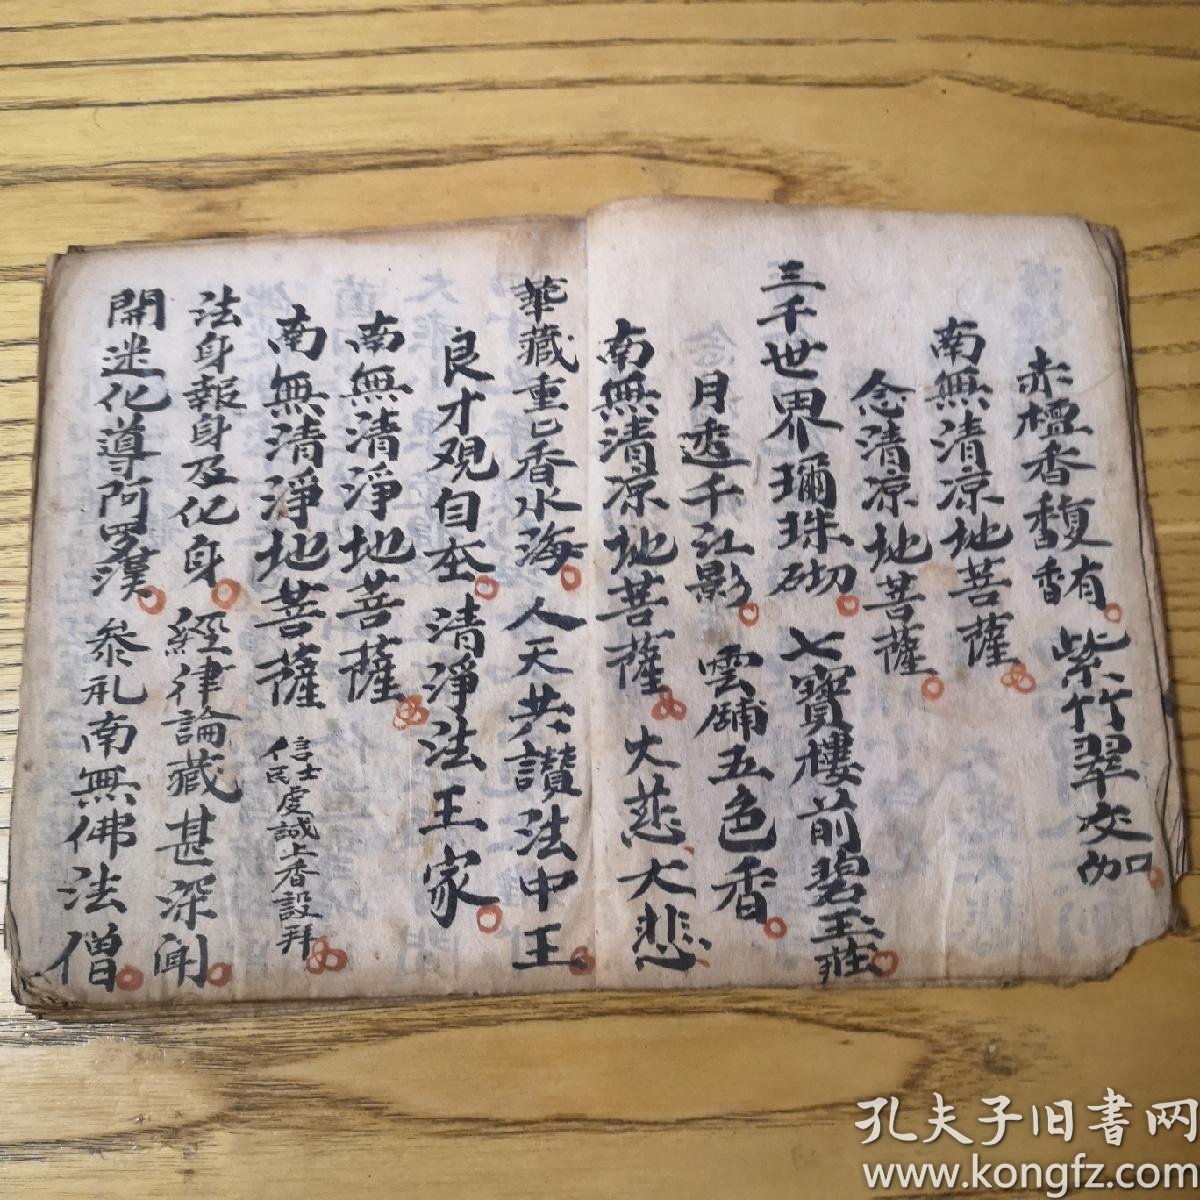 赤檀香馥有香 紫竹翠交加
南無清凉地菩薩
念清凉地菩薩
三千世界彌珠砌 七寶樓前碧玉莊
月透千江影 雲鋪五色香
南無清凉地菩薩 大悲大悲
華藏重巳香水海 人天共讚法中王
良才观自在 清淨法王家
南無清淨地菩薩
南無清淨地菩薩 信士民虔誠上香設拜
法身報身及化身 經律論藏甚深闻
開迷化導阿罗漢 叅礼南無佛法僧
孔夫子旧書网
www.kongfz.com